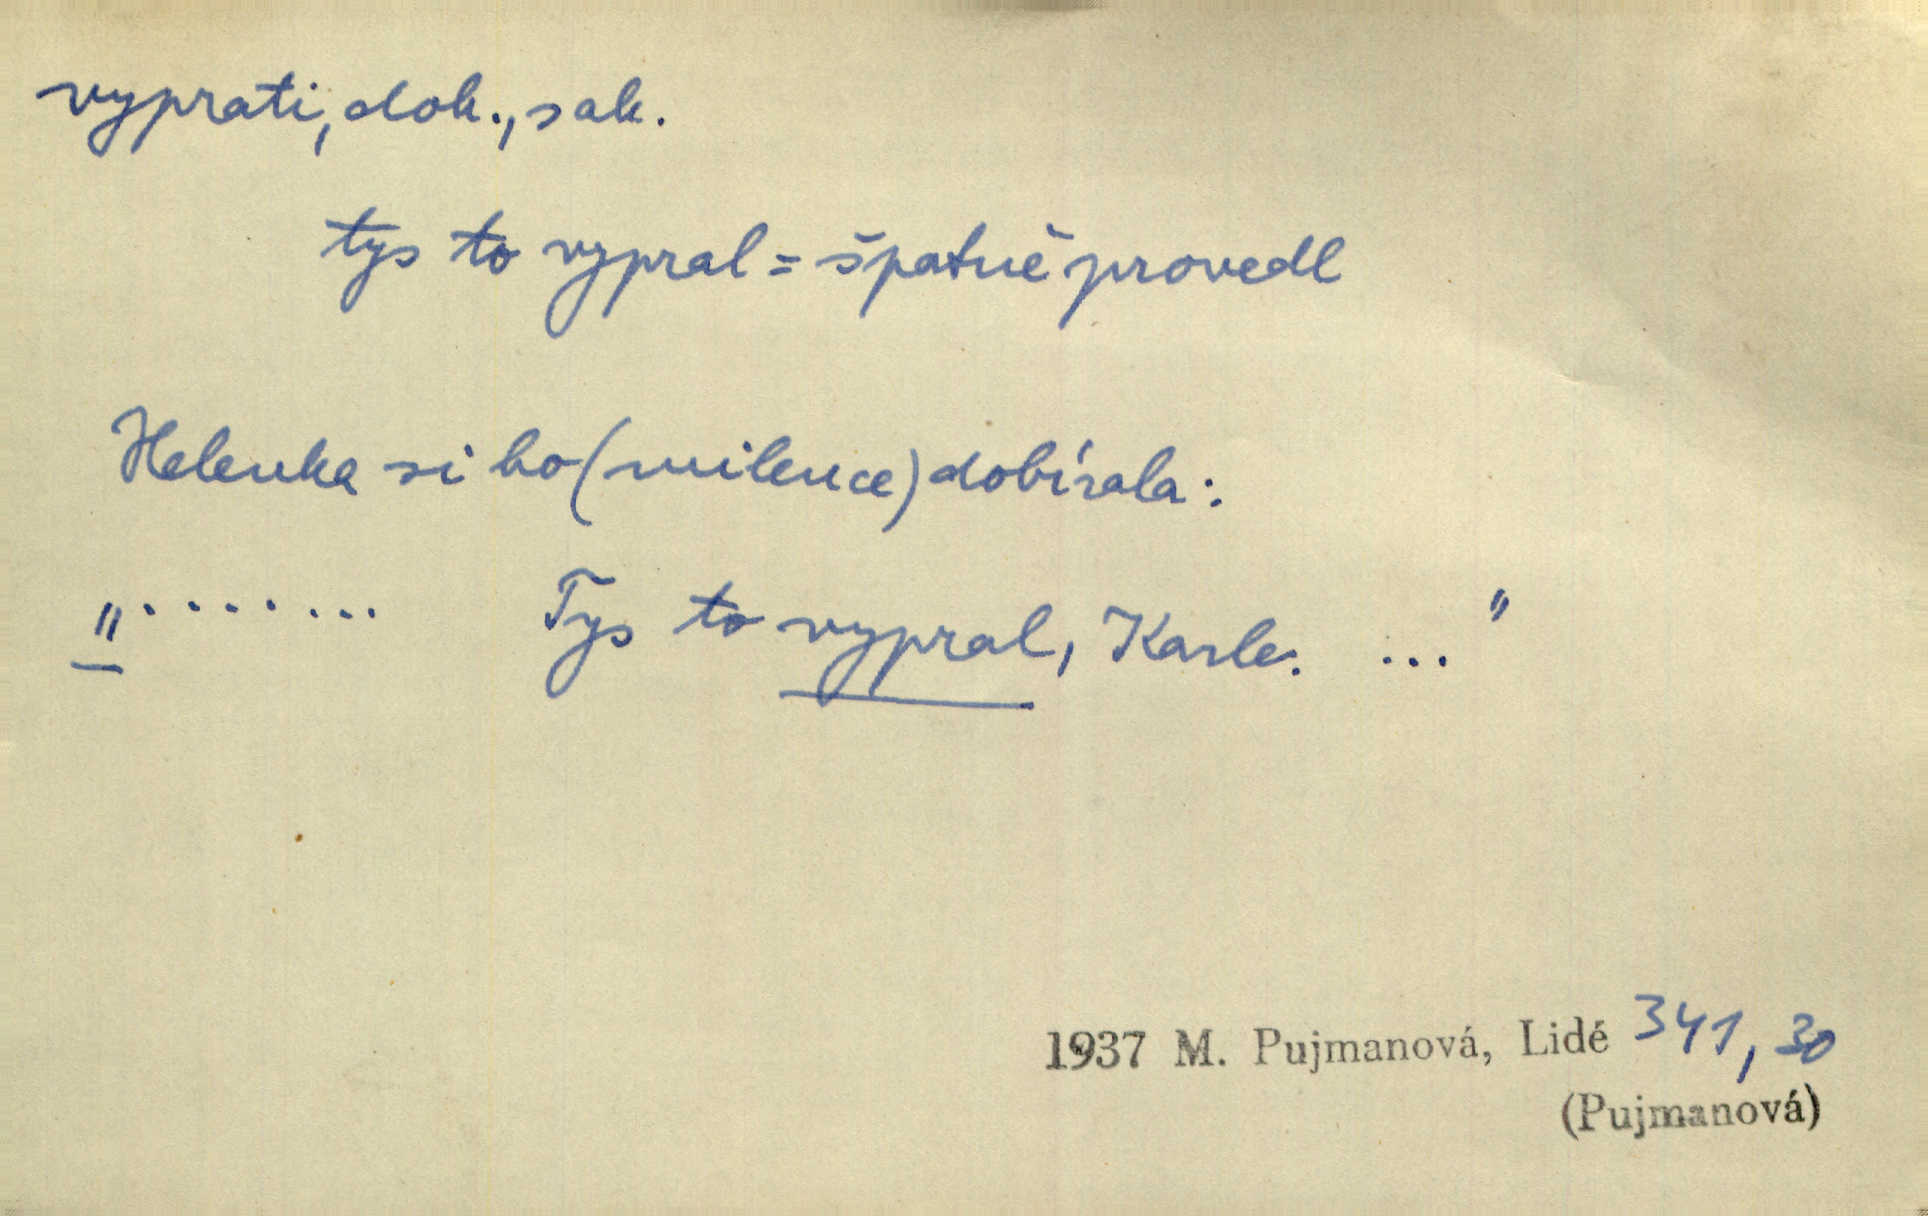 vyprati, dok., sak.
tys to vypral = špatně provedl
Helenka si ho (milence) dobírala:
"........ Tys to vypral, Karle. ..."
1937 M. Pujmanová, Lidé 341, 30
(Pujmanová)